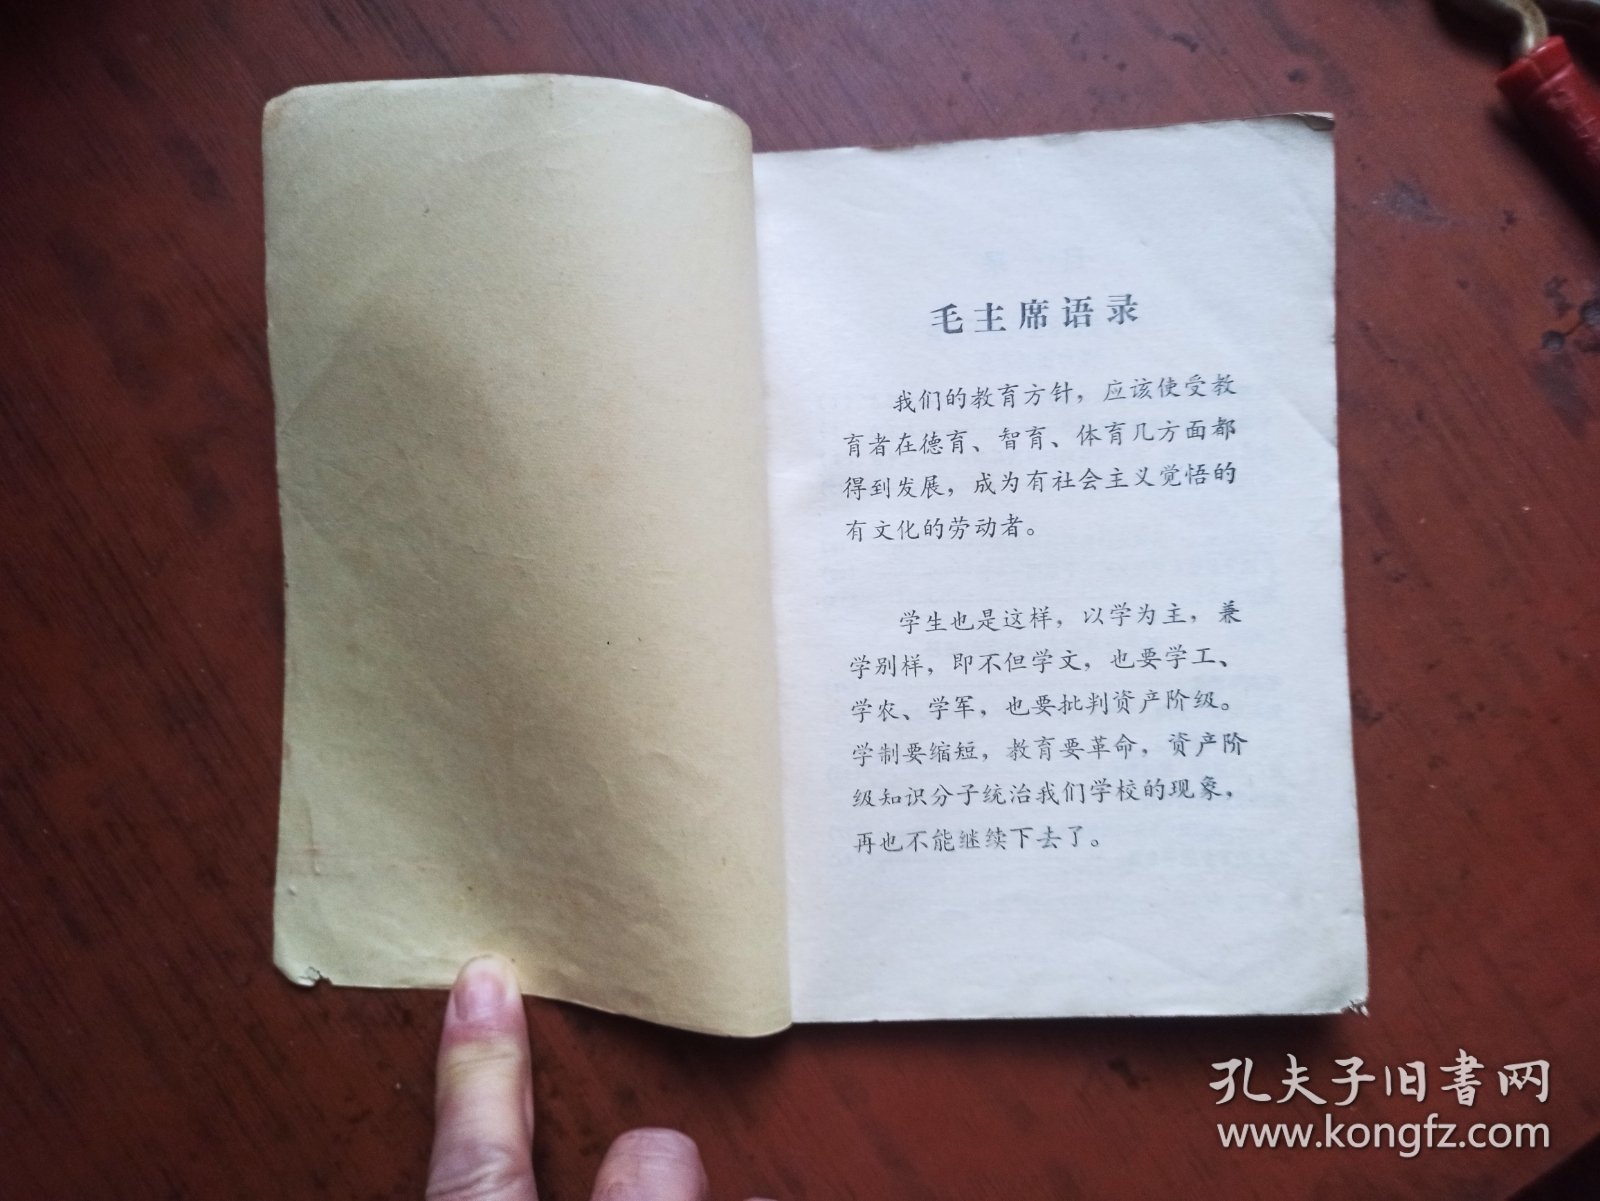 毛主席语录
我们的教育方针，应该使受教
育者在德育、智育、体育几方面都
得到发展，成为有社会主义觉悟的
有文化的劳动者。
学生也是这样，以学为主，兼
学别样，即不但学文，也要学工、
学农、学军，也要批判资产阶级。
学制要缩短，教育要革命，资产阶
级知识分子统治我们学校的现象，
再也不能继续下去了。
孔夫子旧书网
www.kongfz.com